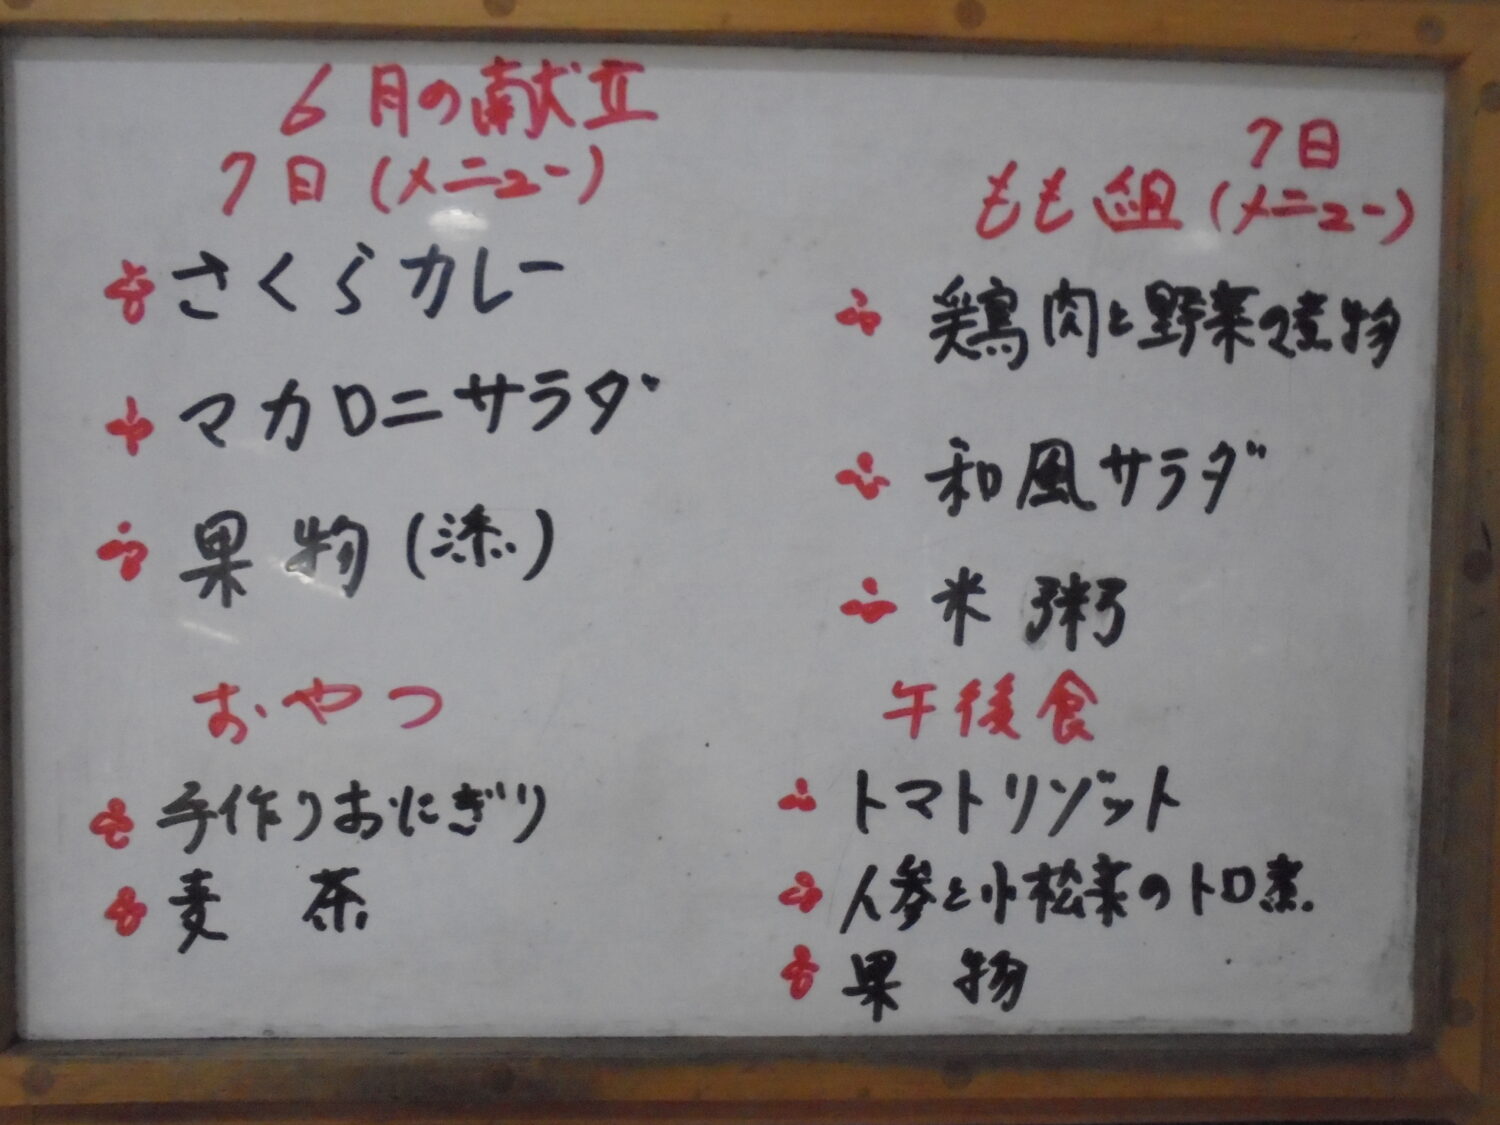 6月の献立
7日(メニュー)
さくらカレー
マカロニサラダ
果物(添)
おやつ
手作りおにぎり
麦茶
7日
もも組(メニュー)
鶏肉と野菜の煮物
和風サラダ
米粥
午後食
トマトリゾット
人参と小松菜のトロ煮
果物